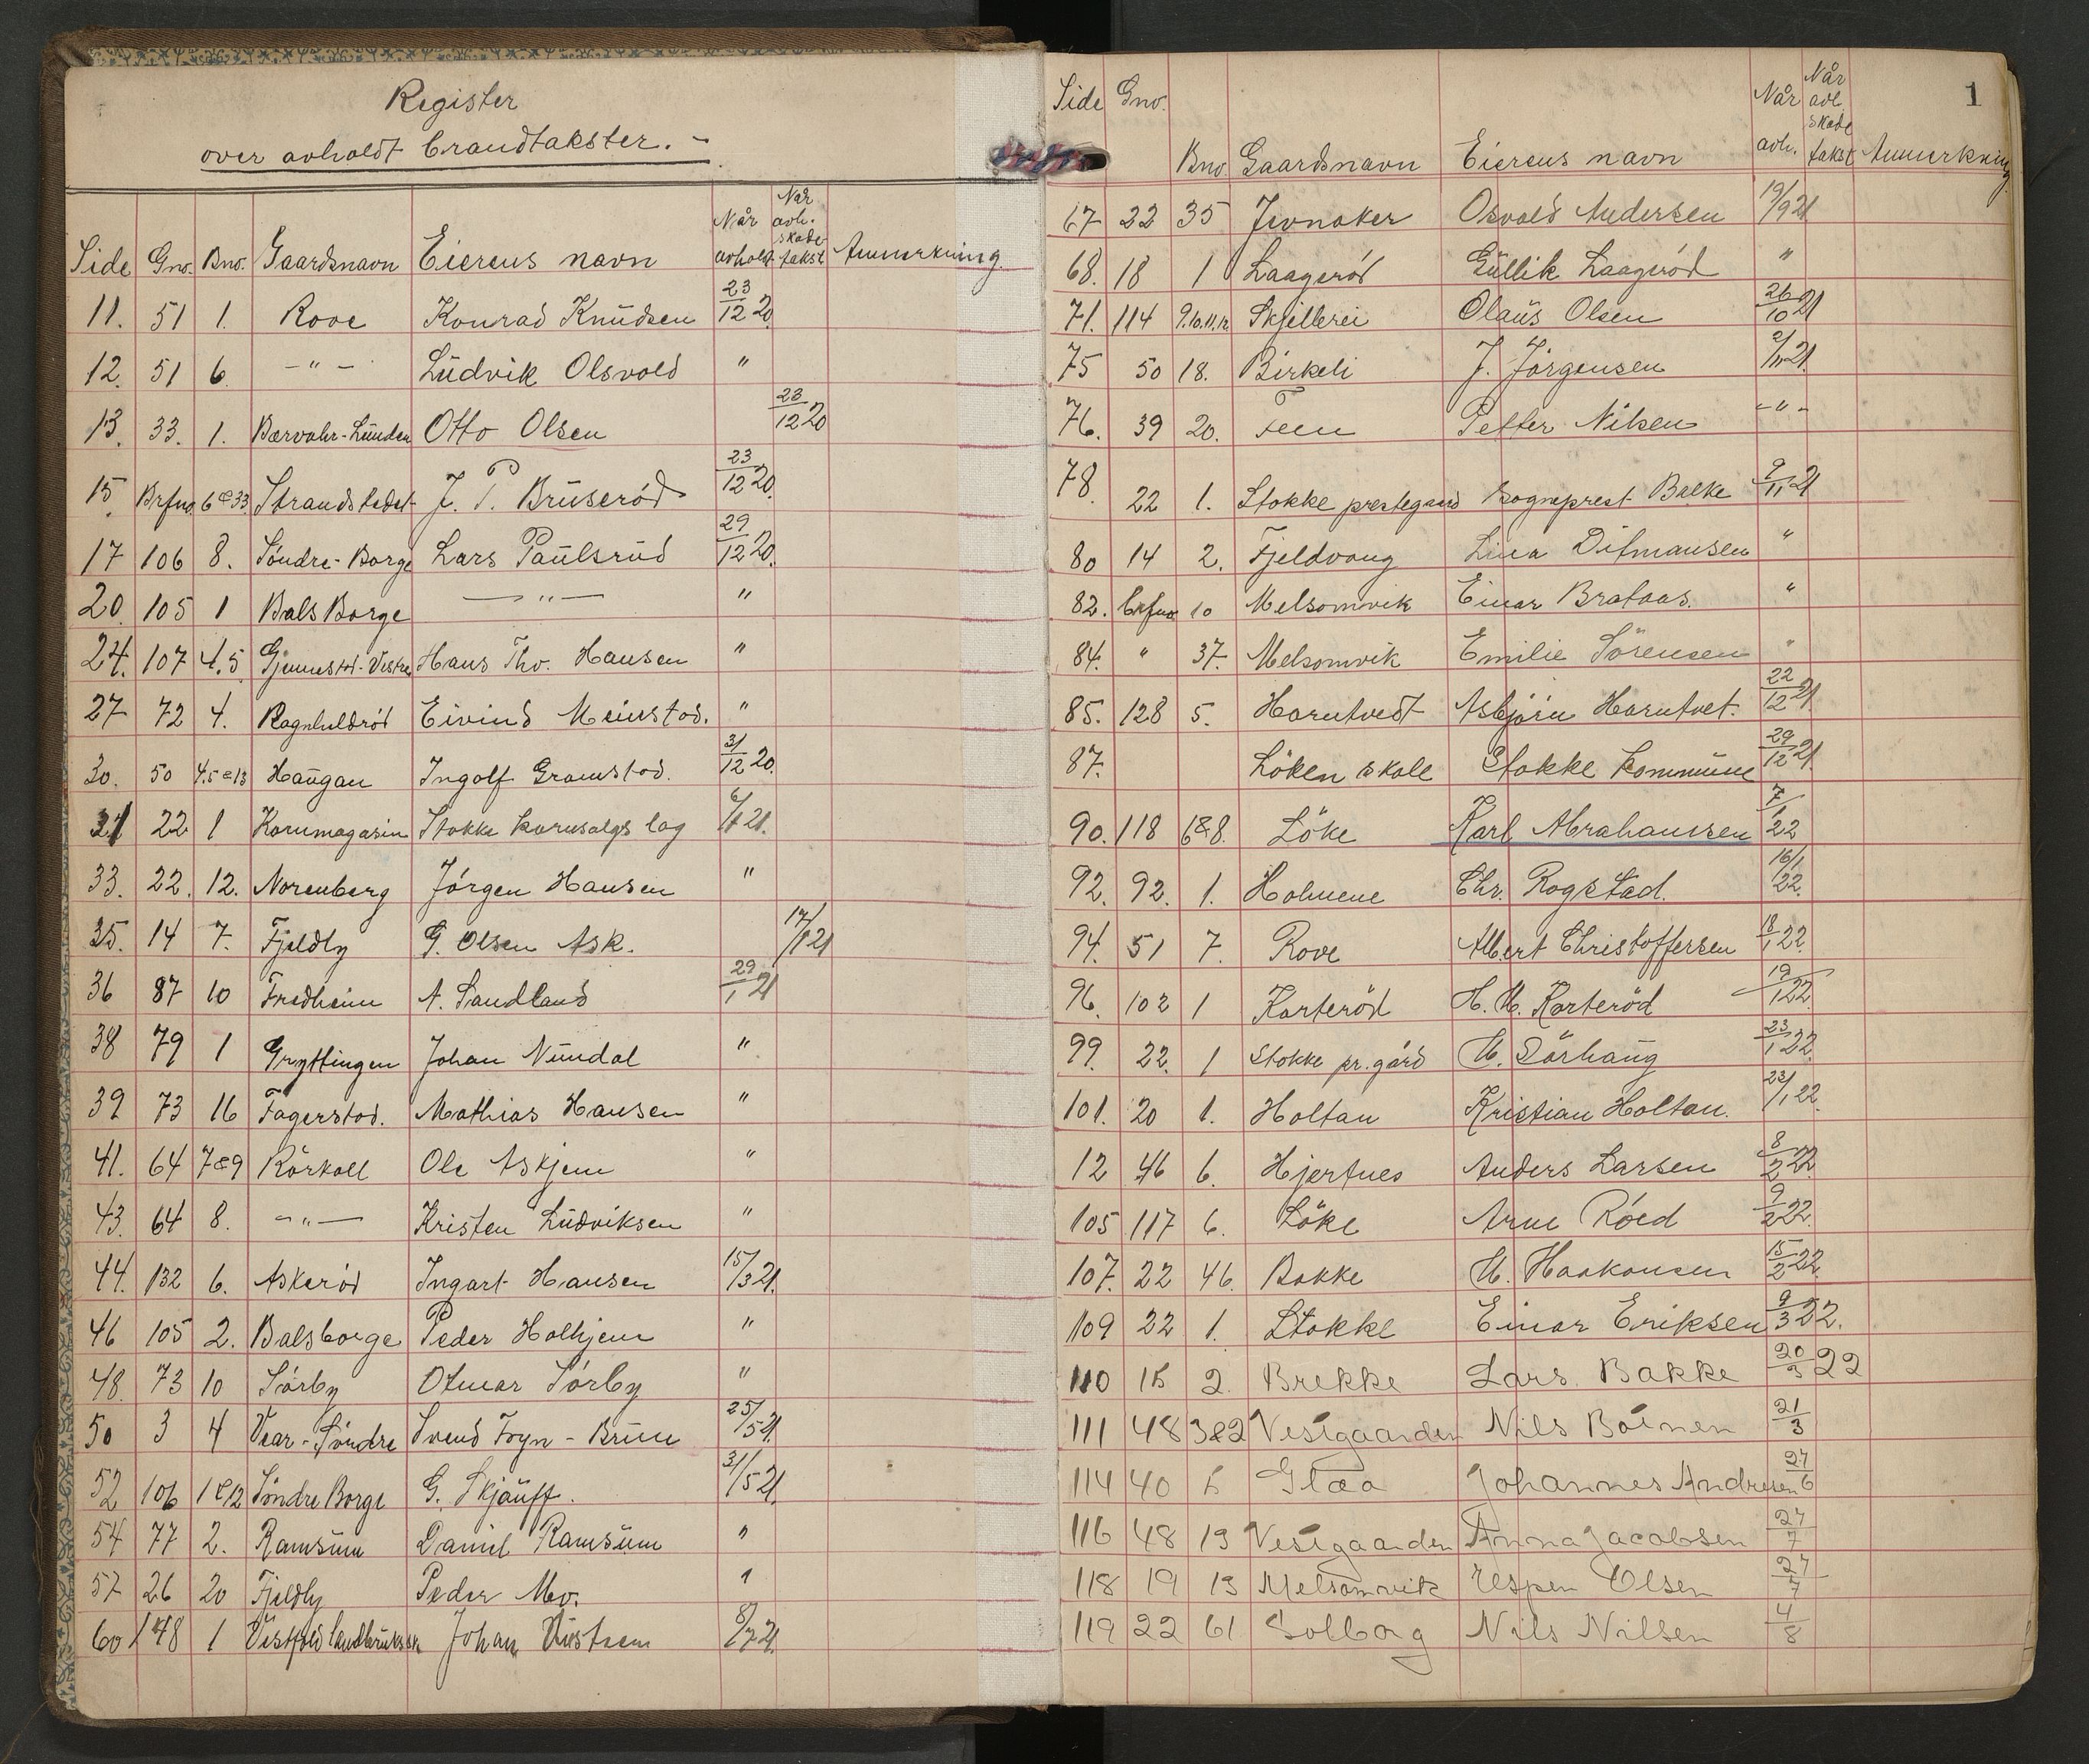 Register
over avholdt brandtakster. -
Side Gno. Bno. Gaardsnavn Eierens navn Når avholdt Når avh. skade-takst Anmerkning.
11. 51 1. Rove Konrad Knudsen 23/12 20.
12. 51 6. - " - Ludvik Olsvold "
13. 33. 1. Bærvahr-Lunden Otto Olsen 23/12 20
15. Brfno. 6 & 33. Strandstedet J. P. Bruserød 23/12 20.
17 106 8. Söndre-Borge Lars Paulsrud 29/12 20.
20. 105 1 Bals Borge - " - "
24. 107 4.5. Gjennestad-Vestre Hans Thv. Hansen "
27 72 4. Ragnhildröd Eivind Meinstad. "
30. 50 4.5 & 13 Haugan Ingolf Gramstad. 31/12 20.
31 22 1 Kornmagasin Stokke kornsalgs lag 6/1 21.
33. 22. 12. Norenberg Jörgen Hansen "
35. 14 7. Fjeldly G. Olsen Ask. 17/1 21
36 87 10 Fredheim A. Sandland 29/1 21
38 79 1 Gryttingen Johan Nundal "
39 73 16 Fagerstad. Mathias Hansen "
41. 64 7 & 9 Rörkoll Ole Askjem "
43. 64 8. - " - Kristen Ludviksen "
44. 132 6. Askeröd Ingart Hansen 15/3 21.
46 105 2. Balsborge Peder Holhjem "
48. 73 10 Sörby Otmar Sörby "
50 3 4 Vear-Söndre Svend Foyn-Bruun 25/5 21.
52 106 1 & 12 Söndre Borge G. Skjäuff. 31/5 21.
54 77 2. Ramsum Daniel Ramsum "
57 26 20 Fjeldly Peder Mo. "
60 148 1 Vestfold landbruksk. Johan 8/7 21.
1
Side Gno. Bno. Gaardsnavn Eierens navn Når avh. Når avh. skade takst Anmerkning.
67 22 35 Jevnaker Osvald Andersen 19/9 21
68. 18 1 Laageröd Gullik Laageröd "
71. 114 9.10.11.12 Skjellerei Olaus Olsen 26/10 21
75 50 18. Birkeli J. Jörgensen 2/11 21.
76. 39 20. Feen Petter Nilsen - " -
78. 22 1. Stokke prestegaard sogneprest Balke 9/11 21
80 14 2. Fjeldvang Lina Ditmansen "
82. brfno 10 Melsomvik Einar Brataas. "
84. " 37. Melsomvik Emilie Sörensen "
85. 128 5. Horntvedt Asbjörn Horntvet. 22/12 21.
87. Löken skole Stokke kommune 29/12 21.
90. 118 6&8. Löke Karl Abrahamsen 7/1 22
92. 92. 1. Holmene Chr. Rogstad. 16/1 22.
94. 51 7. Rove Albert Christoffersen 18/1 22.
96. 102 1 Karteröd H. M. Karteröd 19/1 22.
99. 22. 1 Stokke pr.gård M. Sörhaug 23/1 22.
101. 20 1. Holtan Kristian Holtan. 23/1 22.
12 46 6. Hjertnes Anders Larsen 8/2 22.
105 117 6. Löke Arne Röed 9/2 22.
107. 22 46. Bakke M. Haakonsen 15/2 22.
109 22 1. Stokke Einar Eriksen 9/3 22.
110 15 2. Brekke Lars Bakke 20/3 22
111 48 3&2 Vestgaarden Nils Boinen 21/3
114 40 5 Glaa Johannes Andresen 27/6
116 48 13 Vestgaarden Anna Jacobsen 27/7
118 19 13 Melsomvik Espen Olsen 27/7
119 22 61 Solborg Nils Nilsen 4/8